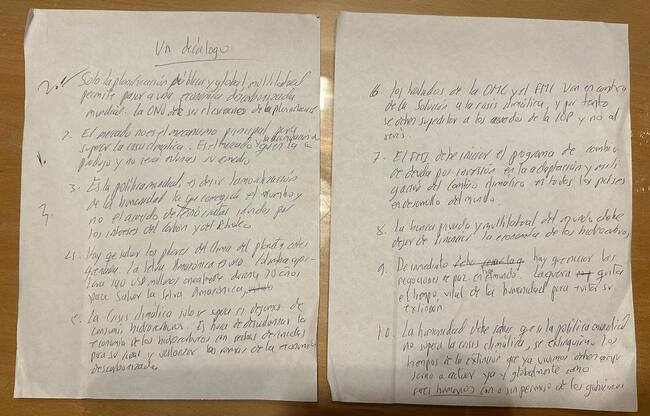 Un decálogo
Solo la planificación pública y global, multilateral
permite pasar a una economía descarbonizada
mundial. La ONU debe ser el escenario de la planificación
2. El mercado no es el mecanismo principal para
superar la crisis climática. Es el mercado y la acumulación de
quien la
produjo y no será entonces su remedio.
3. Es la política mundial, es decir la movilización
de la humanidad la que corregirá el rumbo y
no el acuerdo de tecnócratas influidos por
los intereses del carbón y el petróleo.
4. Hay que salvar los pilares del clima del planeta
La Selva Amazónica es uno. Colombia
USD millones anualmente durante 20 años
para salvar la Selva Amazónica,
La crisis climática solo se supera si dejamos de
consumir hidrocarburos. Es hora de desvalorizar la
economía de los hidrocarburos con fechas definidas
para su final y valorizar las ramas de la economía
descarbonizada
6. Los tratados de la OMC y el FMI van en contra
de la solución a la crisis climática, y por tanto
se deben supeditar a los acuerdos de la COP y no al
revés
7. El FMI debe iniciar el programa de cambio
de deuda por inversión en la adaptación y miti
gación del cambio climático en todos los países
en desarrollo del mundo.
8. La banca privada y multilateral del mundo, debe
dejar de financiar la economía de los hidrocarburos,
9. De inmediato hay que iniciar las
negociaciones de paz en el mundo. La guerra quita
el tiempo vital de la humanidad para evitar su
extinción
10. La humanidad debe saber que si la política mundial
no supera la crisis climática, se extinguirá. Los
tiempos de la extinción que ya vivimos deben
a actuar ya y globalmente como
seres humanos con o sin permiso de los gobiernos